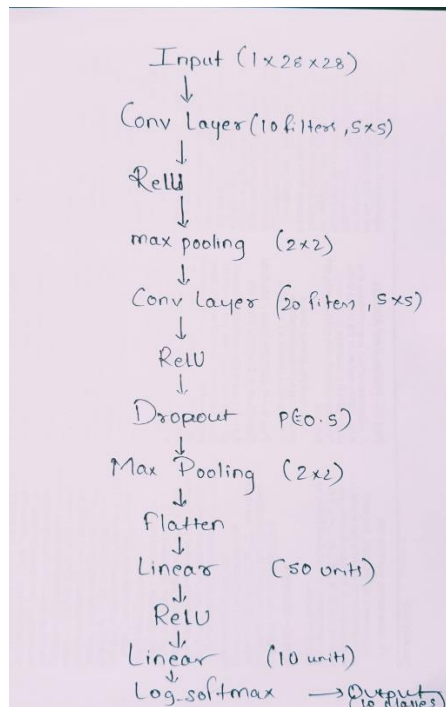 Input (1x28x28)
Conv Layer (10 filters, 5x5)
ReLU
max pooling (2x2)
Conv Layer (20 filters, 5x5)
ReLU
Dropout P(=0.5)
Max Pooling (2x2)
Flatten
Linear (50 units)
ReLU
Linear (10 units)
Log_softmax → Output
(10 classes)